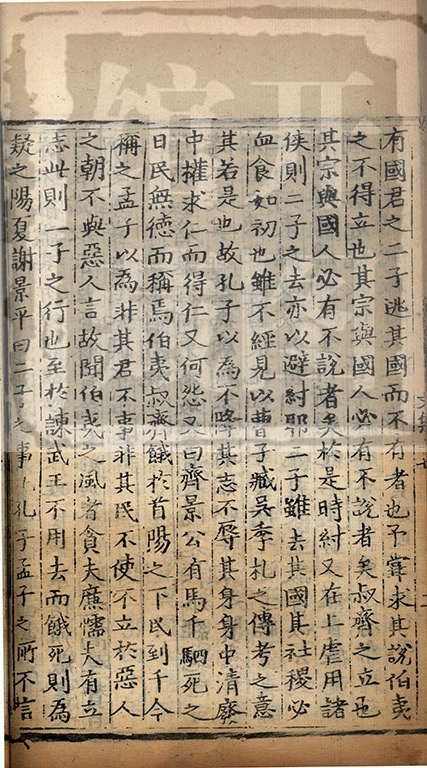 有國君之二子逃其國而不有者也予嘗求其說伯夷
之不得立也其宗與國人必有不說者矣叔齊之立也
其宗與國人必有不說者矣於是時紂又在上虐用諸
侯則二子之去亦以避紂耶二子雖去其國其社稷必
血食如初也雖不經見以曹子臧吳季札之傳考之意
其若是也故孔子以為不降其志不辱其身身中清廢
中權求仁而得仁又何怨又曰齊景公有馬千駟死之
日民無德而稱焉伯夷叔齊餓於首陽之下民到于今
稱之孟子以為非其君不事非其民不使不立於惡人
之朝不與惡人言故聞伯夷之風者貪夫廉懦夫有立
志此則一子之行也至於諫武王不用去而餓死則為
疑之陽夏謝景平曰二子之事凡孔子孟子之所不言